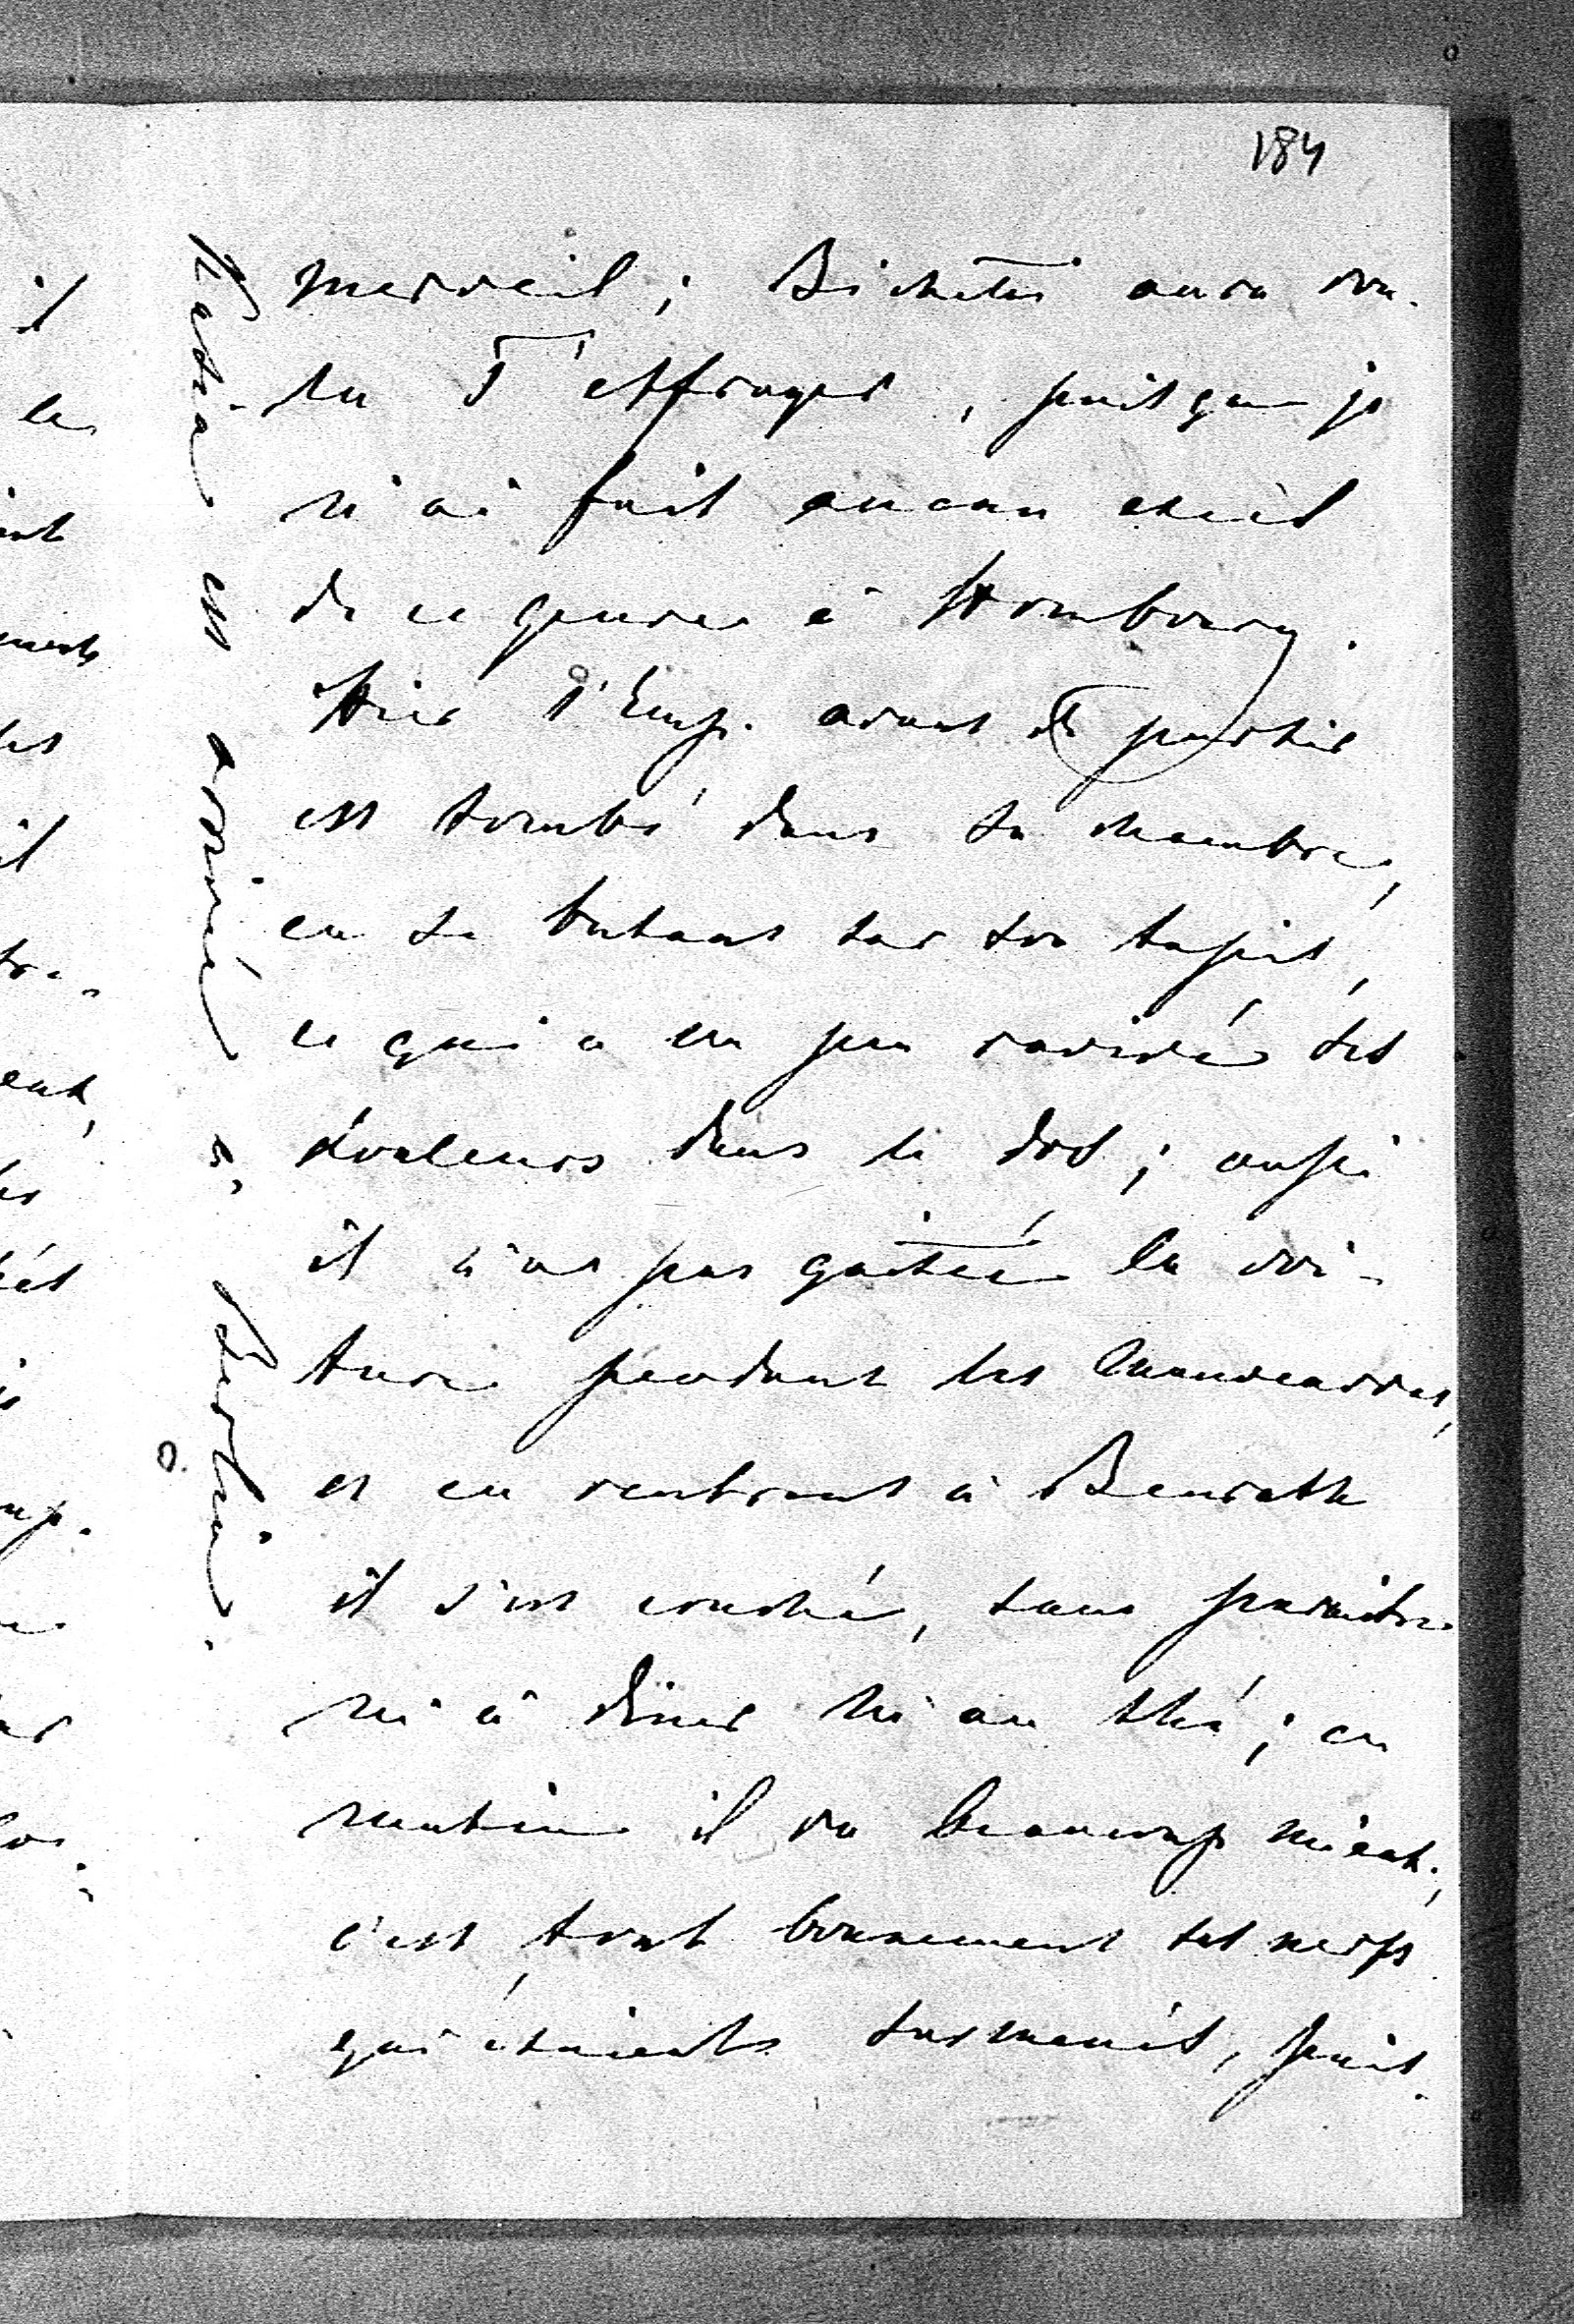 184
merveil; aura vou-
lu t'effrayer, puisque je
n'ai fait aucun excès
de ce genre à Hombourg.
Hier l'Emp. avant de partir
est tombé dans sa chambre,
en se butant sur son tapis,
ce qui a un peu ravivé ses
douleurs dans le dos; aussi
il n'a pas quitté la voi-
ture pendant les manœuvres,
et en rentrant à Benrath
il s'est couché, sans paraître
ni à dîner ni au thé; ce
matin il va beaucoup mieux;
c'est tout bonnement ses nerfs
qui étaient surmenés, puis-
est arrivé à Berlin.